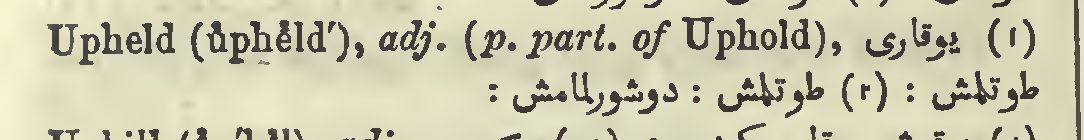 Upheld (ŭphĕld′), adj. (p. part. of Uphold), (١) يوقارى
طوتلمش : (٢) طوتلمش : دوشورلمامش :